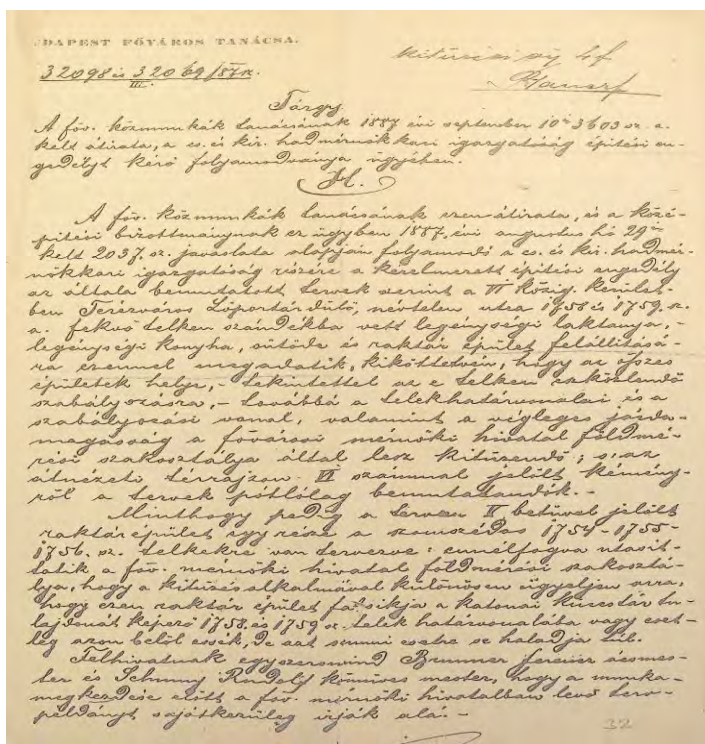 BUDAPEST FŐVÁROS TANÁCSA.
32098 és 32069/887 sz.
III.
Kitűzési díj 4 f
Tárgy
A főv. közmunkák tanácsának 1887 évi september 10-én 3603 sz. a.
kelt átirata, a cs. és kir. hadmérnökkari igazgatóság építési en-
gedélyt kérő folyamodványa ügyében.
H.
A főv. közmunkák tanácsának ezen átirata, és a közé-
pítési bizottmánynak ez ügyben 1887. évi augustus hó 29-én
kelt 2037. sz. javaslata alapján folyamodó a cs. és kir. hadmér-
nökkari igazgatóság részére a kérelmezett építési engedély
az általa bemutatott tervek szerint a VI közig. kerület-
ben Terézváros Lőportárdűlő, névtelen utca 1758 és 1759. sz.
a. fekvő telken szándékba vett legénységi laktanya,-
legénységi konyha, sütöde és raktár épület felállításá-
ra ezennel megadatik, kiköttetvén, hogy az összes
épületek helye,- tekintettel az e telken eszközlendő
szabályozásra,- továbbá a telekhatárvonalai és a
szabályozási vonal, valamint a végleges járda-
magasság a fővárosi mérnöki hivatal földmé-
rési szakosztálya által lesz kitűzendő; s: az
átnézeti térrajzon VI számmal jelölt kémény-
ről a tervek pótlólag bemutatandók.-
Minthogy pedig a terven II betűvel jelölt
raktárépület egy része a szomszédos 1754-1755-
1756. sz. telkekre van tervezve: ennélfogva utasít-
tatik a főv. mérnöki hivatal földmérési szakosztá-
lya, hogy a kitűzés alkalmával különösen ügyeljen arra,
hogy ezen raktár épület falsíkja a katonai kincstár tu-
lajdonát képező 1758. és 1759 sz. telek határvonalába vagy eset-
leg azon belől essék, de azt semmi esetre se haladja túl.
Felhivatnak egyszersmind Brunner Ferencz ácsmes-
ter és Schmury Rudolf kőmives mester, hogy a munka-
megkezdése előtt a főv. mérnöki hivatalban levő terv-
példányt sajátkezüleg irják alá.-
32